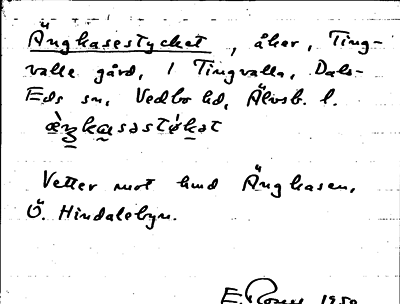 Ängkasestycket, åker, Ting-
valla gård, 1 Tingvalla, Dals-
Eds sn, Vedbo hd, Älvsb. l.
æ̀ŋkasəstỳkət
Vetter mot hmd Ängkasen,
Ö. Hindalebyn.
E. 1950